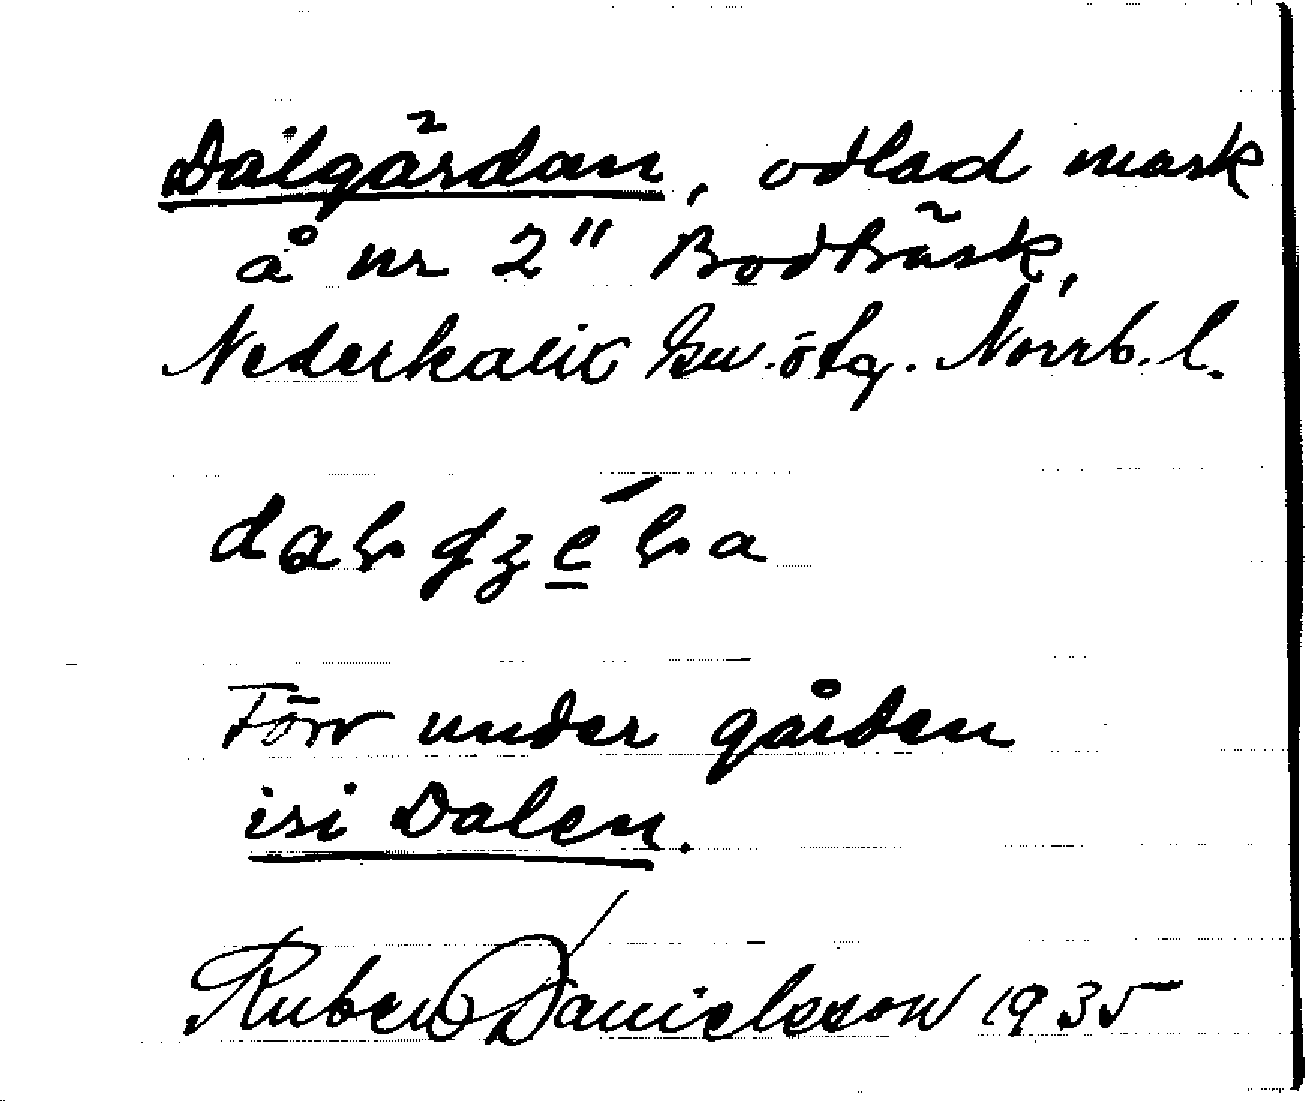 Dalgärdan, odlad mark
å nr 2" Bodträsk,
Nederkalix sn. ö tg. Norrb. l.
Förr under gården
isi Dalen.
Ruben Danielsson 1935